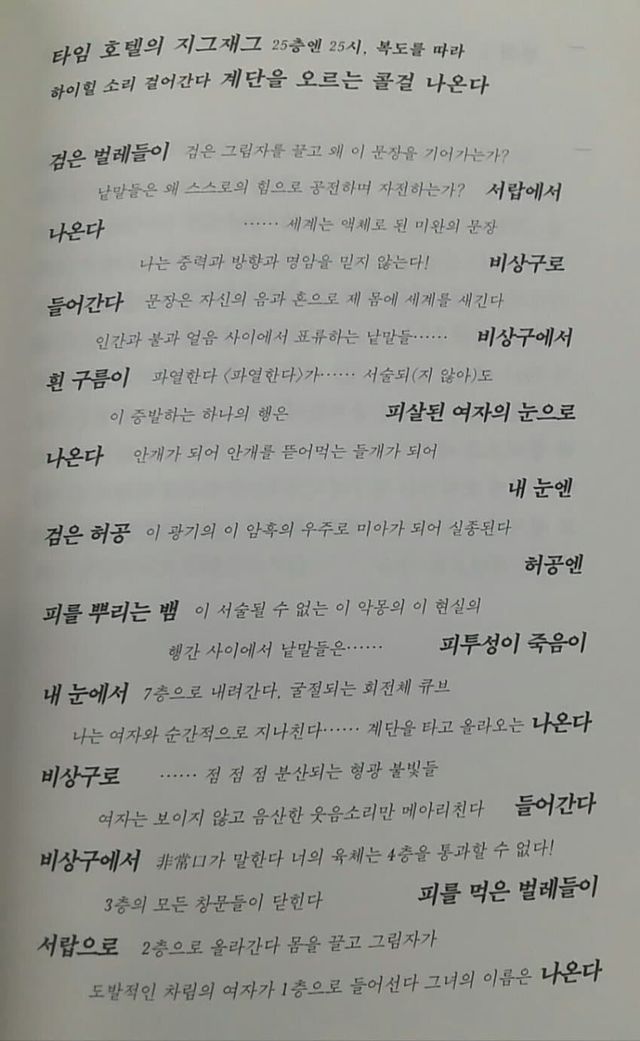 타임 호텔의 지그재그 25층엔 25시, 복도를 따라
하이힐 소리 걸어간다 계단을 오르는 콜걸 나온다
검은 벌레들이 검은 그림자를 끌고 왜 이 문장을 기어가는가?
낱말들은 왜 스스로의 힘으로 공전하며 자전하는가? 서랍에서
나온다 …… 세계는 액체로 된 미완의 문장
나는 중력과 방향과 명암을 믿지 않는다! 비상구로
들어간다 문장은 자신의 음과 혼으로 제 몸에 세계를 새긴다
인간과 불과 얼음 사이에서 표류하는 낱말들…… 비상구에서
흰 구름이 파열한다 〈파열한다〉가…… 서술되(지 않아)도
이 증발하는 하나의 행은 피살된 여자의 눈으로
나온다 안개가 되어 안개를 뜯어먹는 들개가 되어
내 눈엔
검은 허공 이 광기의 이 암흑의 우주로 미아가 되어 실종된다
허공엔
피를 뿌리는 뱀 이 서술될 수 없는 이 악몽의 이 현실의
행간 사이에서 낱말들은…… 피투성이 죽음이
내 눈에서 7층으로 내려간다, 굴절되는 회전체 큐브
나는 여자와 순간적으로 지나친다…… 계단을 타고 올라오는 나온다
비상구로 …… 점 점 점 분산되는 형광 불빛들
여자는 보이지 않고 음산한 웃음소리만 메아리친다 들어간다
비상구에서 非常口가 말한다 너의 육체는 4층을 통과할 수 없다!
3층의 모든 창문들이 닫힌다 피를 먹은 벌레들이
서랍으로 2층으로 올라간다 몸을 끌고 그림자가
도발적인 차림의 여자가 1층으로 들어선다 그녀의 이름은 나온다